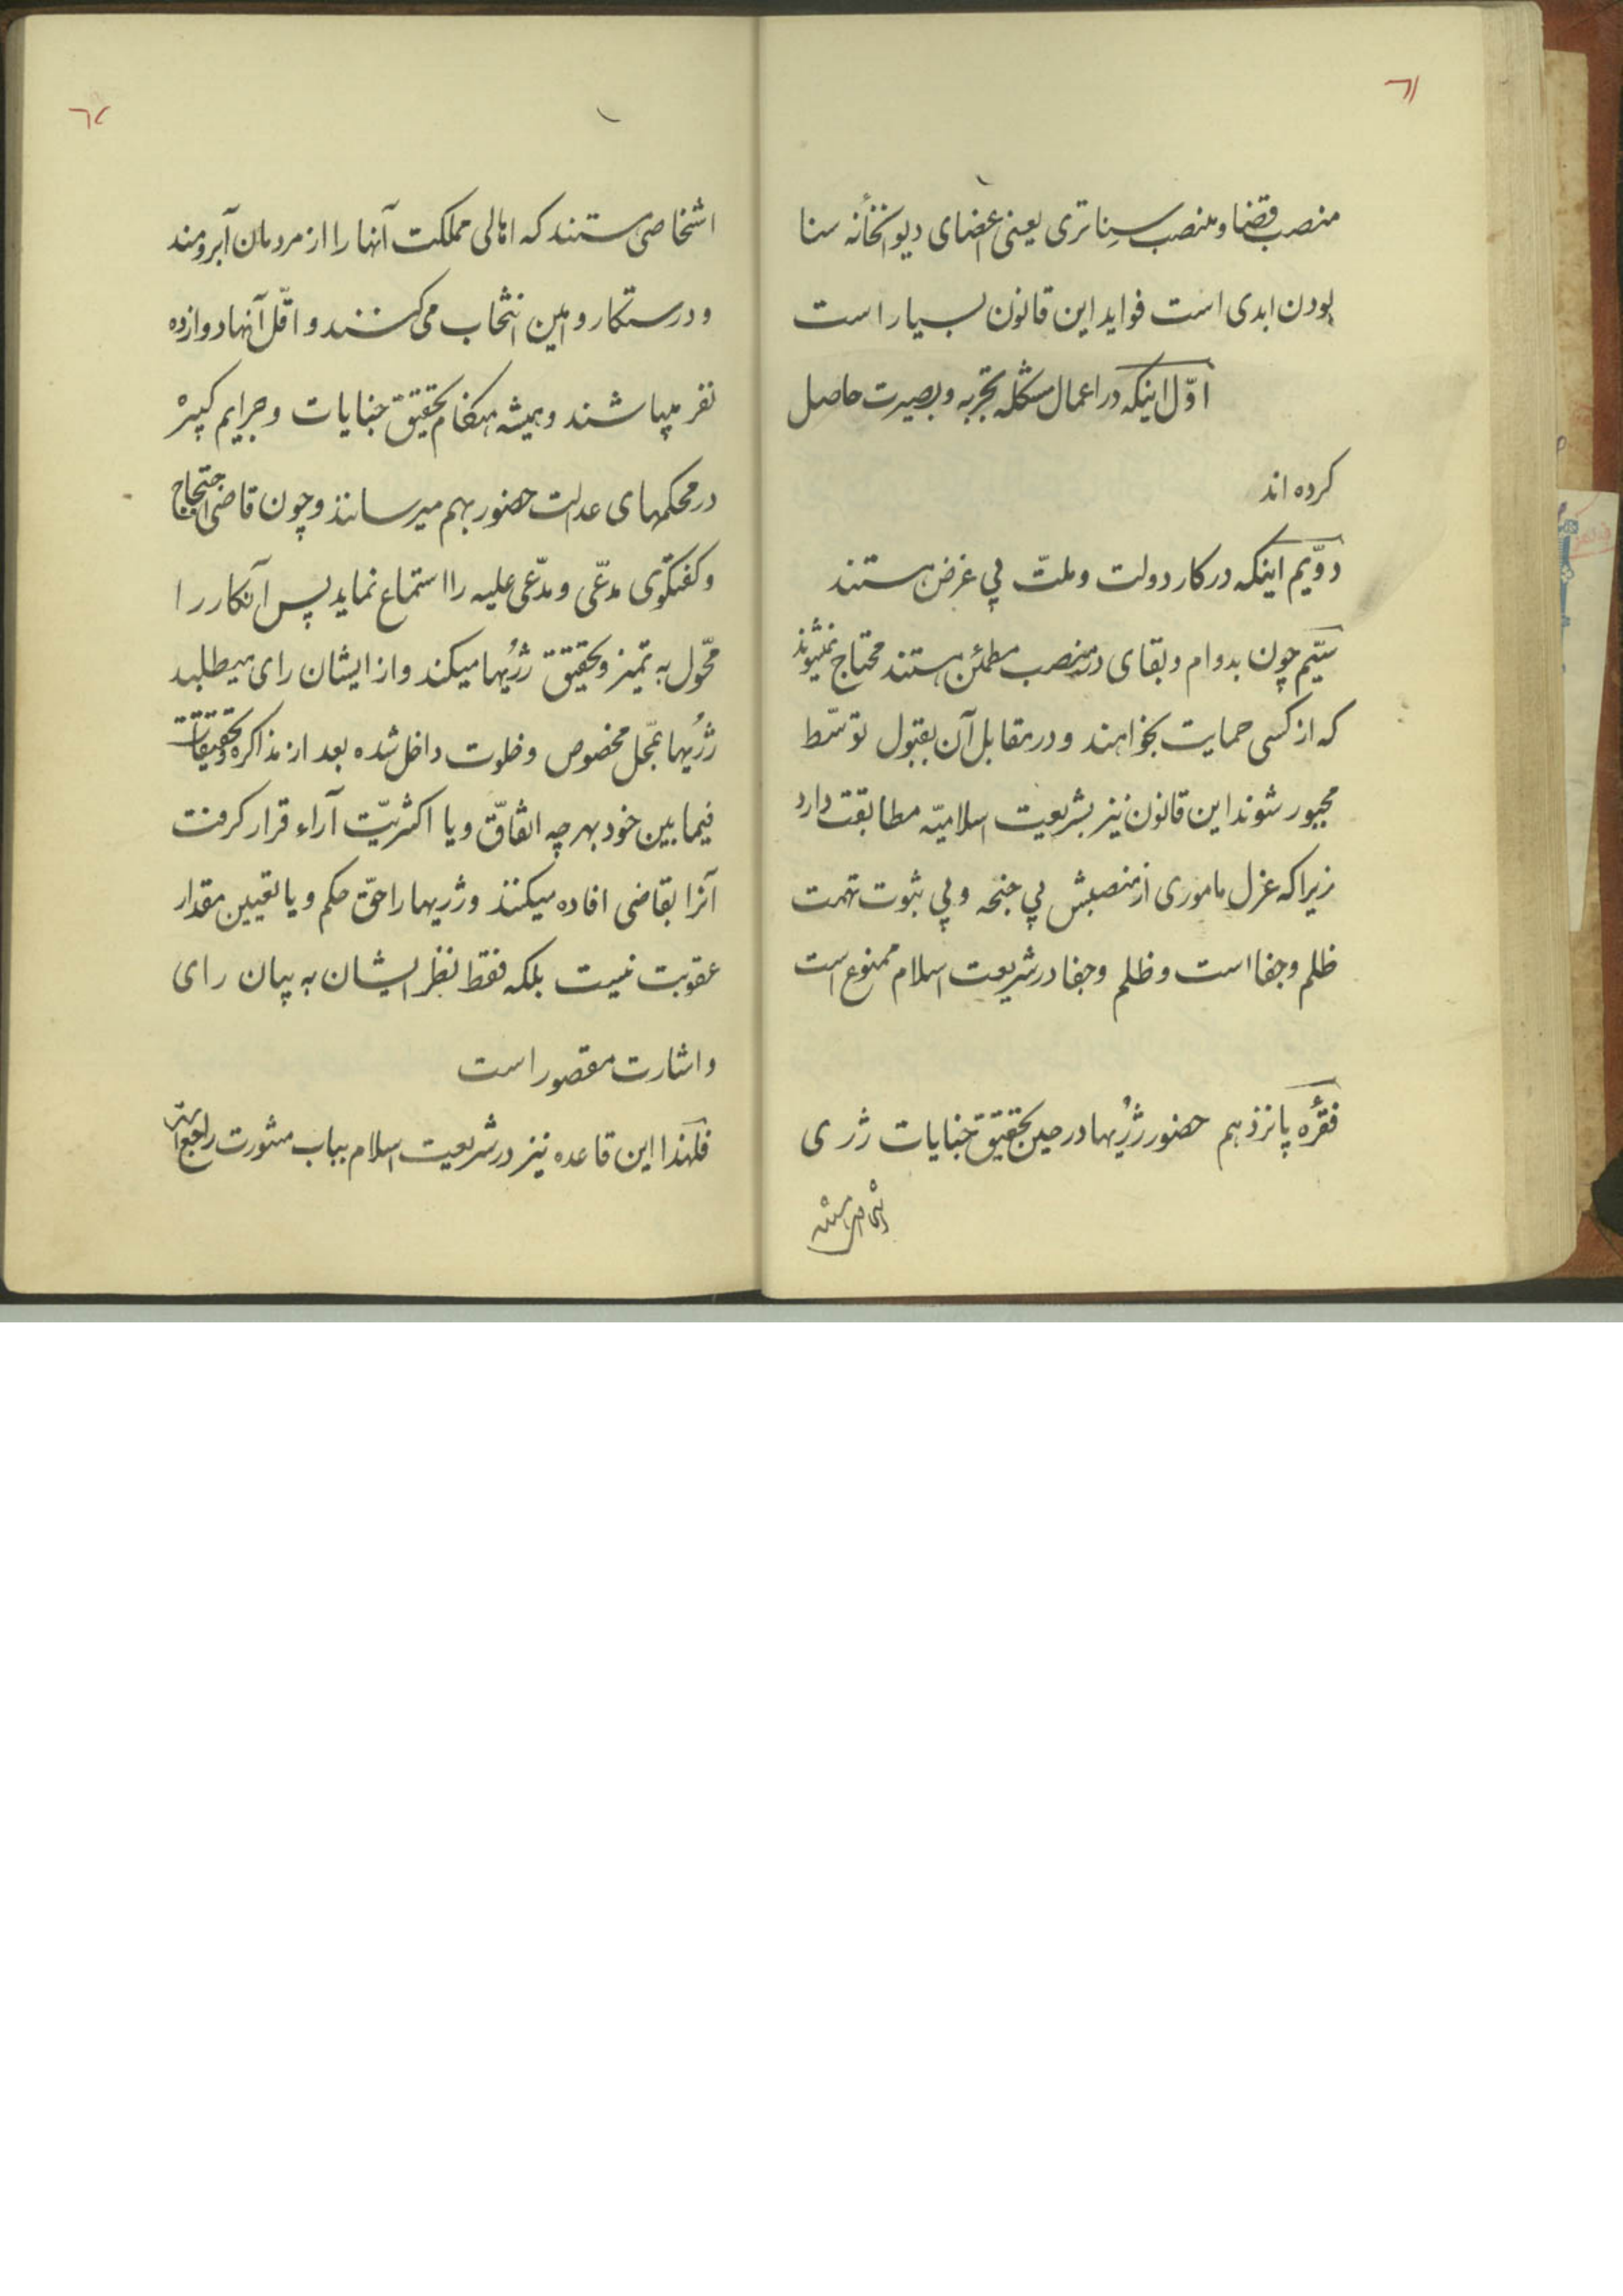 ٦١
منصب قضا و منصب سِناتری یعنی اعضای دیوانخانهٔ سنا
بودن ابدی است فواید این قانون بسیار است
اوّل اینکه در اعمال مشکله تجربه و بصیرت حاصل
کرده اند
دوّیم اینکه در کار دولت و ملّت بی غرض هستند
سیّیم چون بدوام و بقای در منصب مطمئن هستند محتاج نمیشوند
که از کسی حمایت بخواهند و در مقابل آن بقبول توسّط
مجبور شوند این قانون نیز بشریعت اسلامیّه مطابقت دارد
زیرا که عزل ماموری از منصبش بی جنحه و بی ثبوت تهمت
ظلم و جفا است و ظلم و جفا در شریعت اسلام ممنوع است
فقرهٔ پانزدهم حضور ژُریها در حین تحقیق جنایات ژری
اشخاص هستند
٦٢
اشخاصی هستند که اهالی مملکت آنها را از مردمان آبرومند
و درستکار و امین انتخاب می کنند و اقّل آنها دوازده
نفر میباشند و همیشه هنگام تحقیق جنایات و جرایم کبیره
در محکمهای عدلت حضور بهم میرسانند و چون قاضی احتجاج
و کفتکوی مدّعی و مدّعی علیه را استماع نماید پس آنکار را
محّول به تمیز و تحقیق ژُریها میکند و از ایشان رای میطلبد
ژُریها بمحّل مخصوص و خلوت داخل شده بعد از مذاکره و تحقیقات
فیما بین خود بهر چه اتفاّق و یا اکثریّت آراء قرار کرفت
آنرا بقاضی افاده میکنند و ژریها را حقّ حکم و یا تعیین مقدار
عقوبت نیست بلکه فقط نظر ایشان به بیان رای
و اشارت مقصور است
فلهذا این قاعده نیز در شریعت اسلام بباب مشورت راجع است